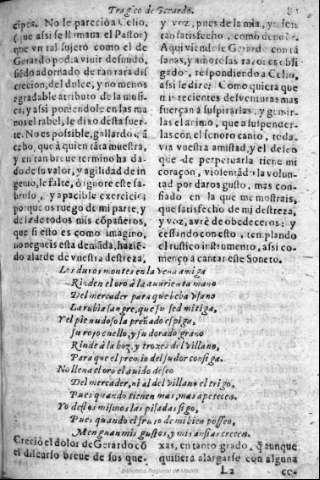 Tragico de Gerardo. 81
cipes. No le pareciò a Celio,
(que assi se llamaua el Pastor)
que vn tal sujeto como el de
Gerardo podia viuir desnudo,
siẽdo adornado de tan rara dis
crecion, del dulce, y no menos
agradable atributo de la musi-
ca, y assi poniendole en las ma
nos el rabel, le dixo desta suer-
te. No es possible, gallardo
ecbo, que à quien tãta muestra,
y en tan breue termino ha da-
do de su valor, y agilidad de in
genio, le falte, ò ignore este sa-
broso, y apacible exercicio;
porque os ruego de mi parte, y
de la de todos mis cõpañeros,
que si esto es como imagino,
no negueis esta demãda, haziẽ-
do alarde de vuestra destreza.
y voz, pues de la mia,
tan satisfecho, como deueis.
Aqui viendose Gerardo con ta
sanas, y amorosas razones obli-
gado, respondiendo a Celio,
assi le dixo; Como quiera que
mis recientes desventuras mas
fuerçan à suspirarlas, y gemir-
las el animo, que a suspender-
las con el sonoro canto, toda-
via vuestra amistad, y el deseo
que de perpetuarla tiene mi
coraçon, violentàdo la volun-
tad por daros gusto, mas con-
fiado en la que me mostrais,
que satisfecho de mi destreza,
y voz, avrè de obedeceros; y
cessando con esto, templando
el rustico instrumento, assi co-
menço a cantar este Soneto.
Los duros montes en la vena amiga
Rinden el oro à la auarienta mano
Del mercader para que beba vfano
La rubia sangre, que su sed mitiga,
Y el piè nudoso la preñada espiga,
Su roxo cuello, y su dorado grano
Rinde à la hoz, y troxes del villano,
Para que el premio del sudor consiga.
No llena el oro el auido deseo
Del mercader, ni al del villano el trigo,
Pues quando tienen mas, mas apetecen.
Yo destos mismos las pisadas sigo,
Pues quando el fruto de mi bien posseo,
Menguan mis gustos, y mis ansias crecen.
Creciò el dolor de Gerardo cõ
el dilcarlo breue de sus que-
xas, en tanto grado, q̃ aunque
quisiera alargarse con alguna
L 2 co-
Biblioteca Regional de Madrid